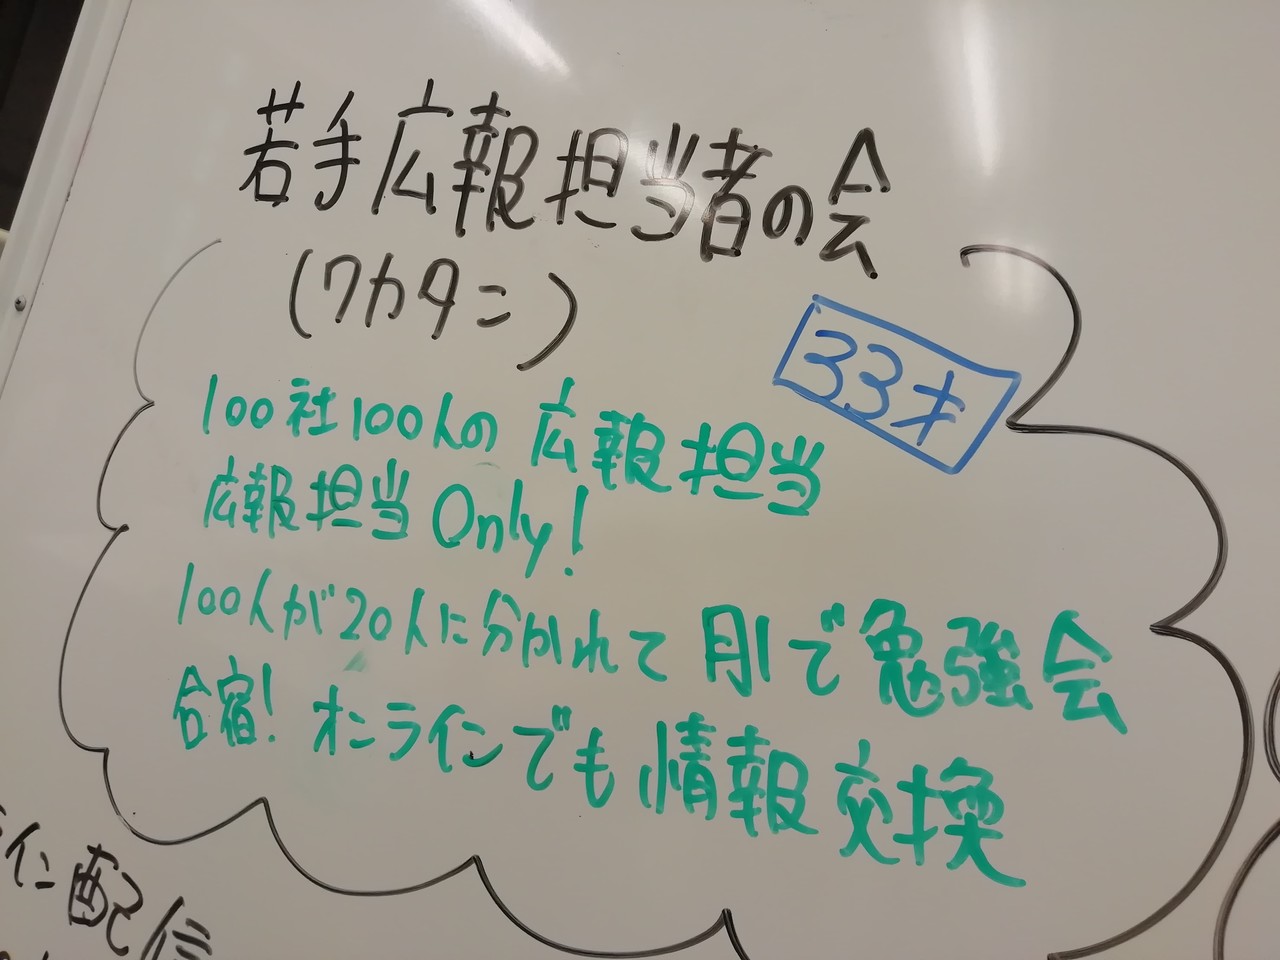 若手広報担当者の会
(ワカタン)
33才
100社100人の広報担当
広報担当Only!
100人が20人に分かれて月1で勉強会
合宿! オンラインでも情報交換
イン配信